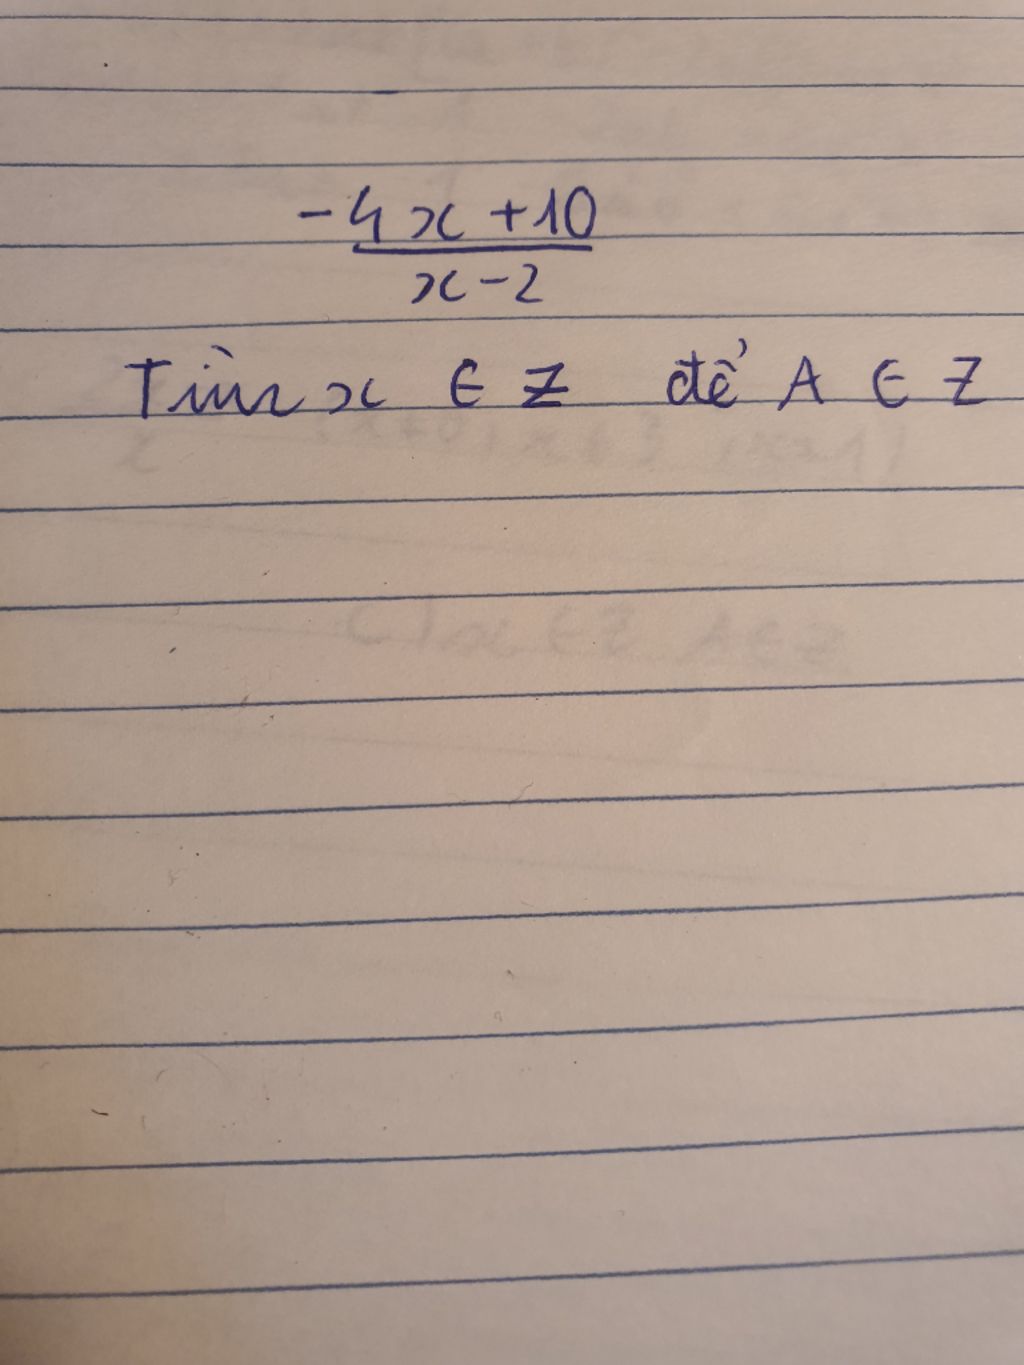 -4x +10
x-2
Tìm x ∈ Z để A ∈ Z